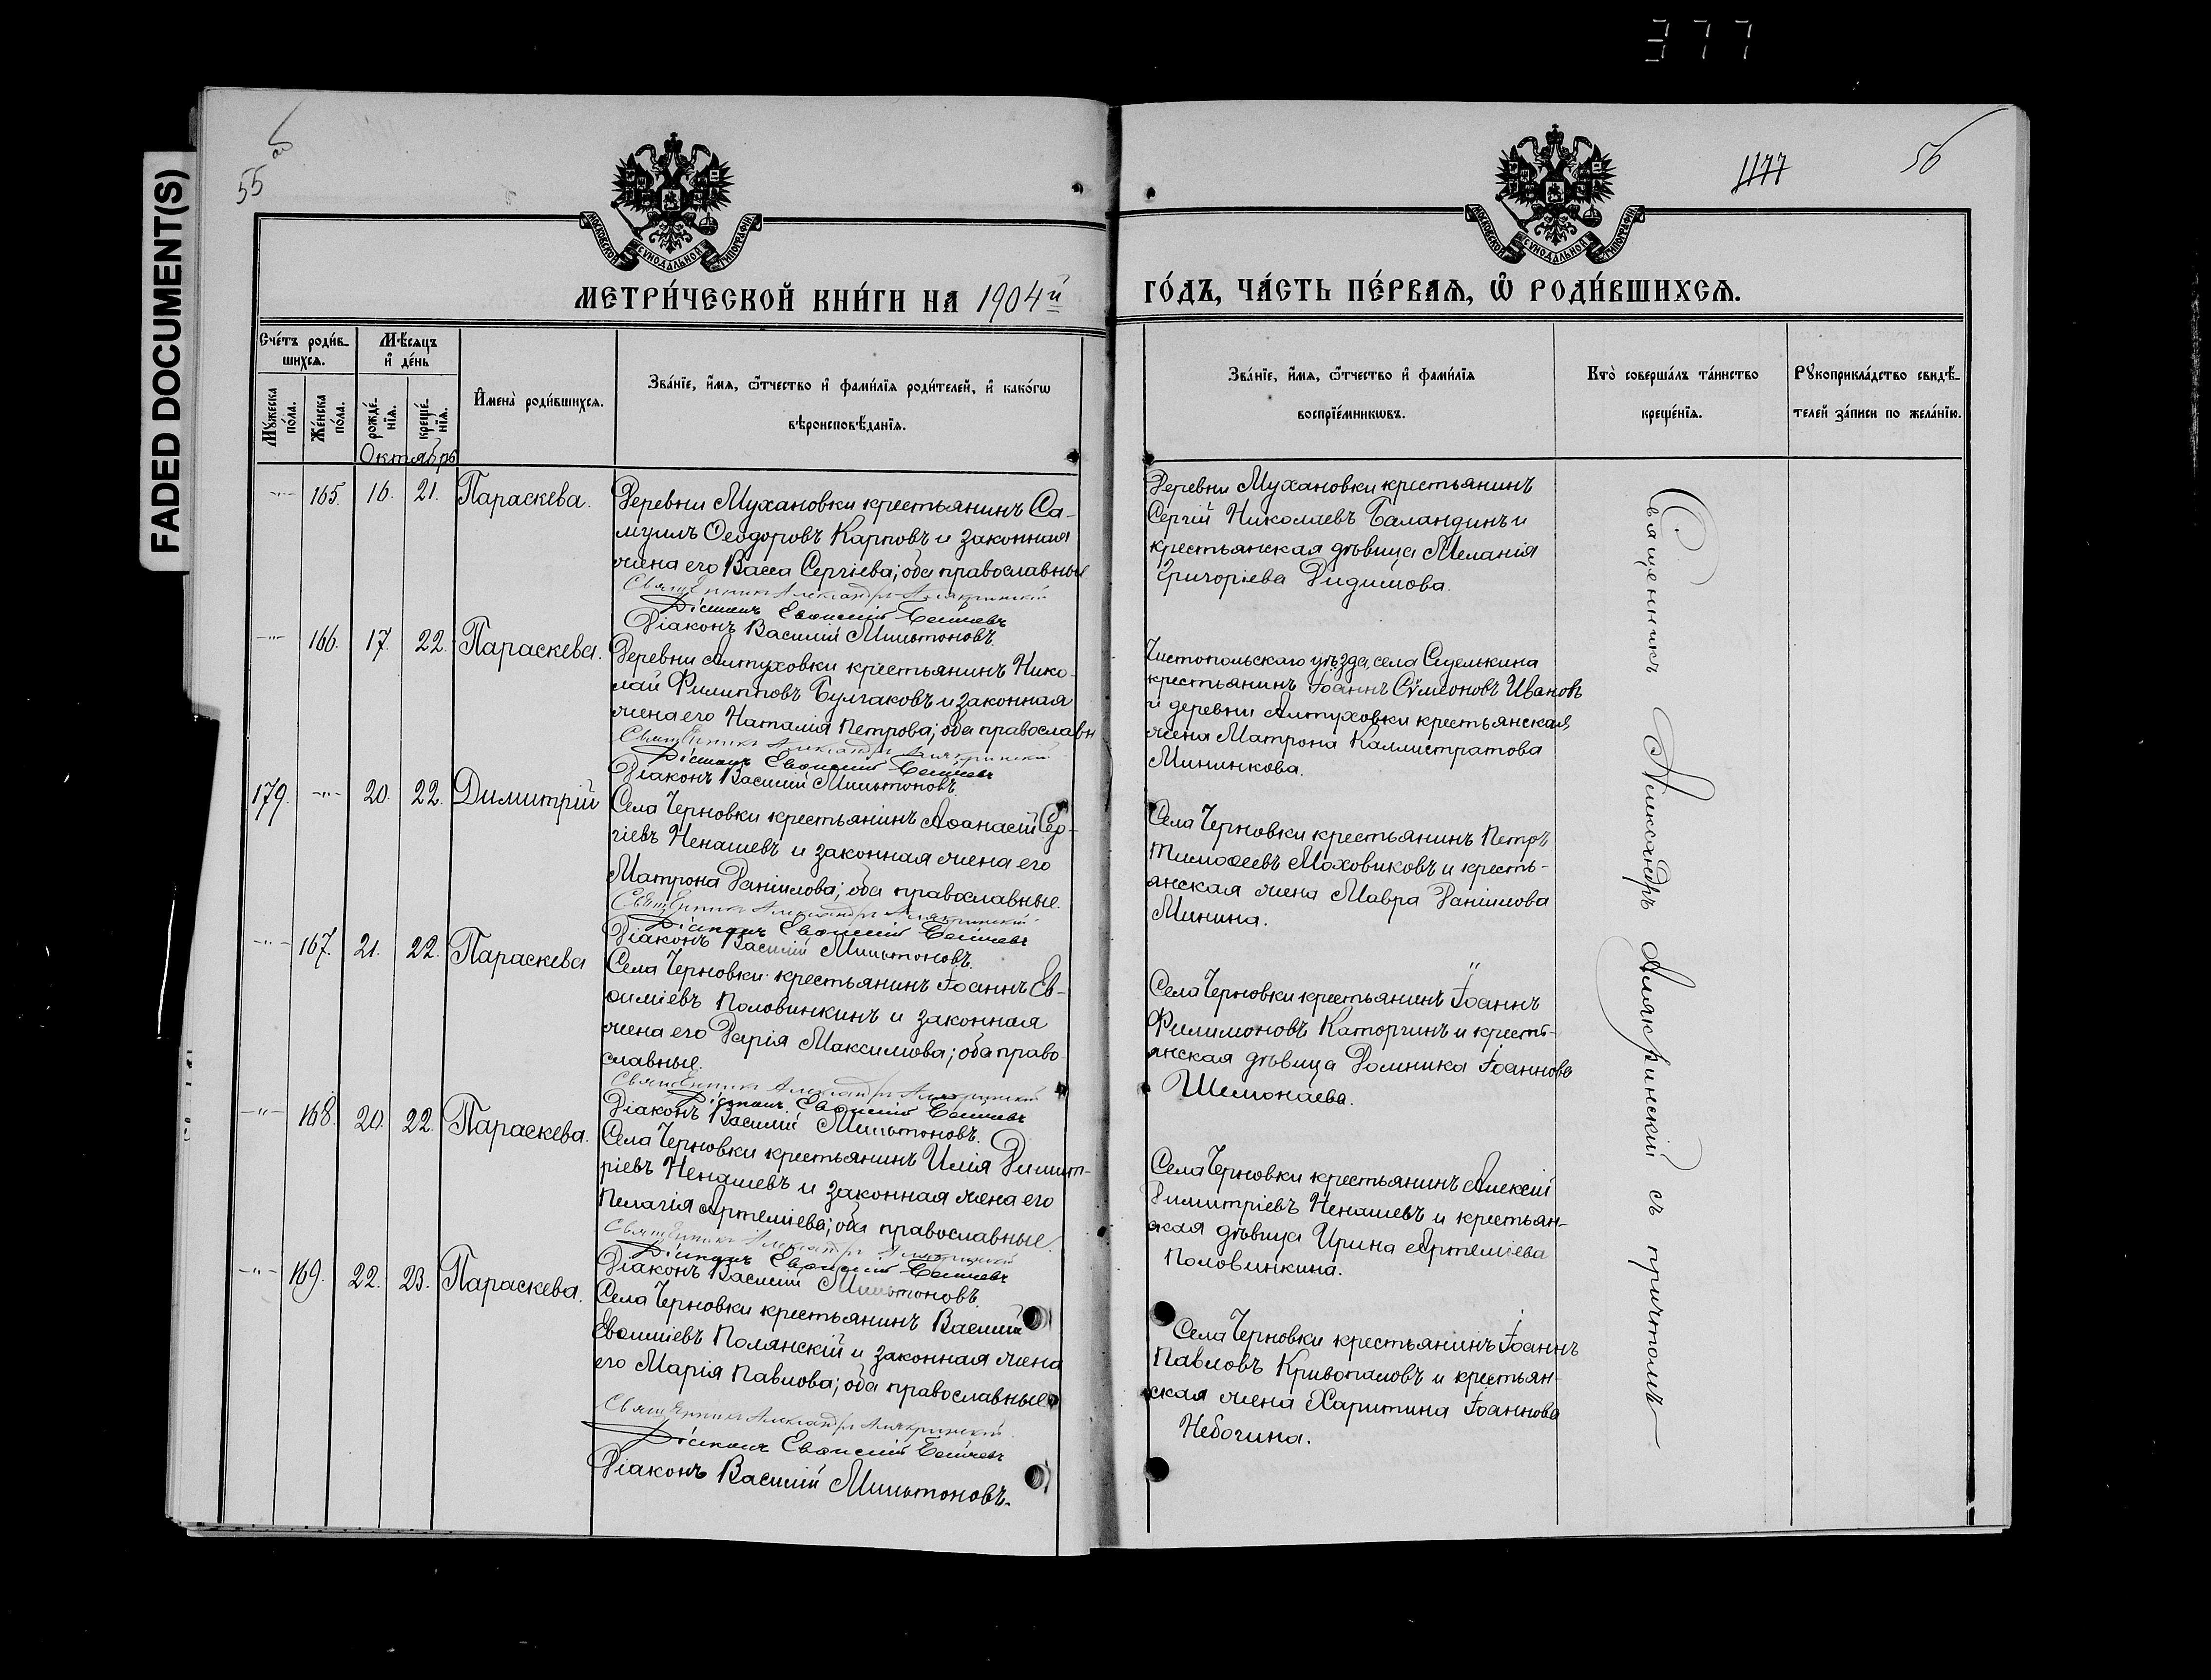 377
FADED DOCUMENT(S)
55 об
1177
56
МОСКОВСКОЙ СѴНОДАЛЬНОЙ ТИПОГРАФІИ
МОСКОВСКОЙ СѴНОДАЛЬНОЙ ТИПОГРАФІИ
МЕТРИ́ЧЕСКОЙ КНИ́ГИ НА 1904й
ГО́ДЪ, ЧА́СТЬ ПЕ́РВАЯ, Ѽ РОДИ́ВШИХСЯ.
Сче́тъ роди́в-
шихся.
Мѣ́сяцъ
и҆ де́нь
Мꙋ́жеска
по́ла.
Же́нска
по́ла.
рожде́-
нїя.
креще́-
нїя.
И҆мена̀ роди́вшихся.
Зва́нїе, и҆́мя, ѻ҆́тчество и҆ фами́лїя роди́телей, и҆ како́гѡ
вѣроисповѣ́данїя.
Зва́нїе, и҆́мя, ѻ҆́тчество и҆ фами́лїя
воспрїе́мникѡвъ.
Кто̀ соверша́лъ та́инство
креще́нїя.
Рꙋкоприкла́дство свидѣ́-
телей за́писи по жела́нїю.
Октябрь
-"- 165. 16. 21. Параскева.
Деревни Мухановки крестьянинъ Са-
муилъ Ѳеодоровъ Карповъ и законная
жена его Васса Сергіева; оба православные
Священникъ Александръ Алякринскій
Діаконъ Василій Мильтоновъ.
Деревни Мухановки крестьянинъ
Сергій Николаевъ Баландинъ и
крестьянская дѣвица Меланія
Григоріева Дидишова.
-"- 166. 17. 22. Параскева.
Деревни Алтуховки крестьянинъ Нико-
лай Филипповъ Булгаковъ и законная
жена его Наталія Петрова; оба православн
Священникъ Александръ Алякринскій
Діаконъ Василій Мильтоновъ.
Чистопольскаго уѣзда, села Седелькина
крестьянинъ Іоаннъ Сѵмеоновъ Ивановъ
и деревни Алтуховки крестьянская
жена Матрона Каллистратова
Мининкова.
179. -"- 20. 22. Димитрій
Села Черновки крестьянинъ Аѳанасій Сер-
гіевъ Ненашевъ и законная жена его
Матрона Даніилова; оба православные.
Священникъ Александръ Алякринскій
Діаконъ Василій Мильтоновъ.
Села Черновки крестьянинъ Петръ
Тимоѳеевъ Маховиковъ и кресть-
янская жена Мавра Даніилова
Минина.
-"- 167. 21. 22. Параскева
Села Черновки крестьянинъ Іоаннъ Ев-
ѳиміевъ Половинкинъ и законная
жена его Дарія Максимова; оба право-
славные.
Священникъ Александръ Алякринскій
Діаконъ Василій Мильтоновъ.
Села Черновки крестьянинъ Іоаннъ
Филимоновъ Каторгинъ и кресть-
янская дѣвица Домника Іоаннова
Шемонаева.
-"- 168. 20. 22. Параскева.
Села Черновки крестьянинъ Илія Димит-
ріевъ Ненашевъ и законная жена его
Пелагія Артеміева; оба православные.
Священникъ Александръ Алякринскій
Діаконъ Василій Мильтоновъ.
Села Черновки крестьянинъ Алексій
Димитріевъ Ненашевъ и крестьян-
ская дѣвица Ирина Артеміева
Половинкина.
-"- 169. 22. 23. Параскева.
Села Черновки крестьянинъ Василій
Евѳиміевъ Полянскій и законная жена
его Марія Павлова; оба православные
Священникъ Александръ Алякринскій
Діаконъ Василій Мильтоновъ.
Села Черновки крестьянинъ Іоаннъ
Павловъ Кривопаловъ и крестьян-
ская жена Харитина Іоаннова
Небогина.
Священникъ Александръ Алякринскій съ причтомъ